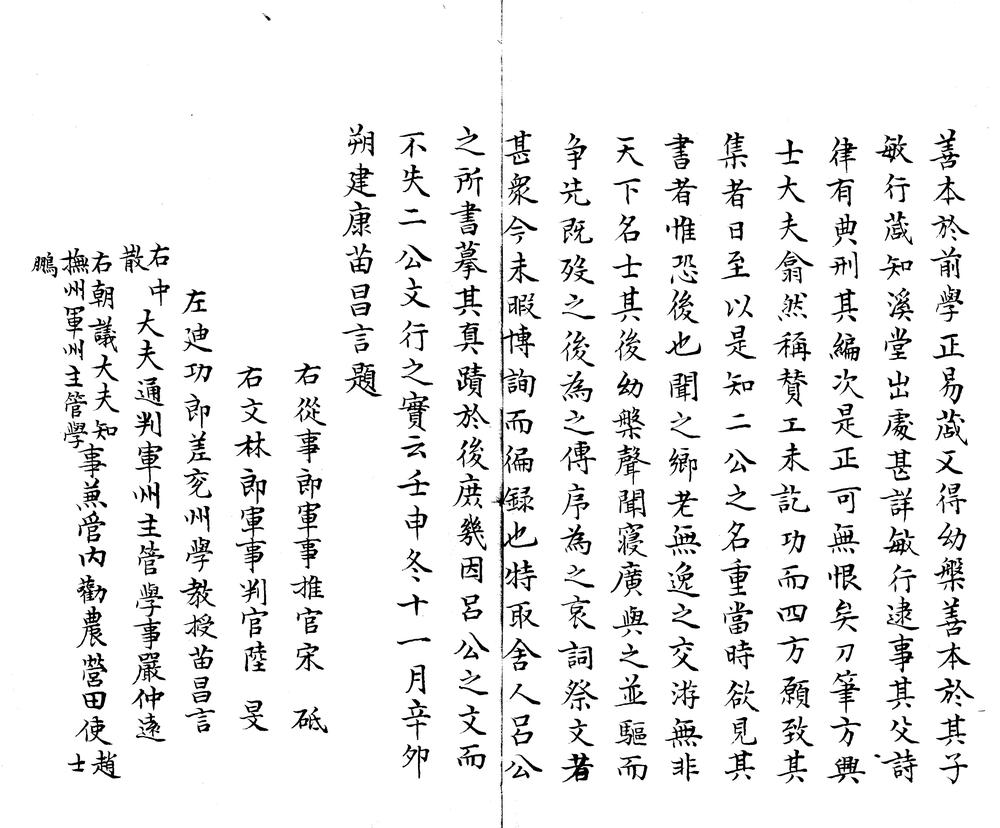 善本於前學正易蕆又得幼槃善本於其子
敏行蕆知溪堂出處甚詳敏行逮事其父詩
律有典刑其編次是正可無恨矣刀筆方興
士大夫翕然稱賛工未訖功而四方願致其
集者日至以是知二公之名重當時欲見其
書者惟恐後也聞之鄉老無逸之交游無非
天下名士其後幼槃聲聞寖廣與之並驅而
争先既歿之後為之傳序為之哀詞祭文者
甚衆今未暇博詢而徧録也特取舍人呂公
之所書摹其真蹟於後庶幾因呂公之文而
不失二公文行之實云壬申冬十一月辛卯
朔建康苗昌言題
右從事郎軍事推官宋 砥
右文林郎軍事判官陸 旻
左廸功郎差充州學教授苗昌言
右中散大夫通判軍州主管學事嚴仲遠
右朝議大夫知撫州軍州主管學事兼管内勸農營田使趙士鵬